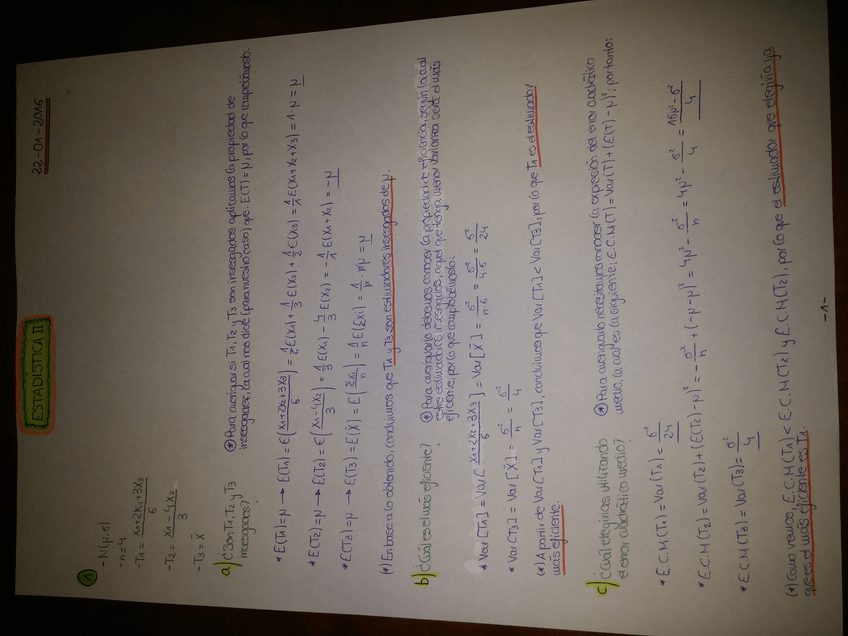 ESTADÍSTICA II
22-01-2016
1
- N(μ,σ)
- n=4
- T1 = (X1+2X2+3X3)/6
- T2 = (X1-4X2)/3
- T3 = X̄
a) ¿Son T1, T2 y T3 insesgados?
⊛ Para averiguar si T1, T2 y T3 son insesgados aplicamos la propiedad de
insesgadez, la cual nos dice (para nuestro caso) que: E(T) = μ, por lo que comprobémoslo.
* E(T1)=μ → E(T1) = E((X1+2X2+3X3)/6) = 1/6 E(X1) + 1/3 E(X2) + 1/2 E(X3) = 1/n E(X1+X2+X3) = 1 μ = μ
* E(T2)=μ → E(T2) = E((X1-4X2)/3) = 1/3 E(X1) - 4/3 E(X2) = -1/n E(X1+X2) = -μ
* E(T3)=μ → E(T3) = E(X̄) = E(ΣXi/n) = 1/n E(ΣXi) = 1/n · nμ = μ
(*) En base a lo obtenido, concluimos que T1 y T3 son estimadores insesgados de μ.
b) ¿Cuál es el más eficiente?
⊛ Para averiguarlo debemos conocer la propiedad de eficiencia, según la cual
entre estimadores insesgados, aquel que tenga menor varianza será el más
eficiente, por lo que comprobémoslo:
* Var[T1] = Var[(X1+2X2+3X3)/6] = Var[X̄] = σ²/n·6 = σ²/4·6 = σ²/24
* Var[T3] = Var[X̄] = σ²/n = σ²/4
(*) A partir de Var[T1] y Var[T3], concluimos que Var[T1] < Var[T3], por lo que T1 es el estimador
más eficiente.
c) ¿Cuál elegirías utilizando el error cuadrático medio?
⊛ Para averiguarlo necesitamos conocer la expresión del error cuadrático
medio, la cual es la siguiente: E.C.M(T) = Var(T) + (E(T) - μ)²; por tanto:
* E.C.M(T1) = Var(T1) = σ²/24
* E.C.M(T2) = Var(T2) + (E(T2)-μ)² = -σ²/n + (-μ-μ)² = 4μ² - σ²/n = 4μ² - σ²/4 = (16μ²-σ²)/4
* E.C.M(T3) = Var(T3) = σ²/4
(*) Como vemos, E.C.M(T1) < E.C.M(T2) y E.C.M(T3), por lo que el estimador que elegiría ya
que es el más eficiente es T1.
-1-